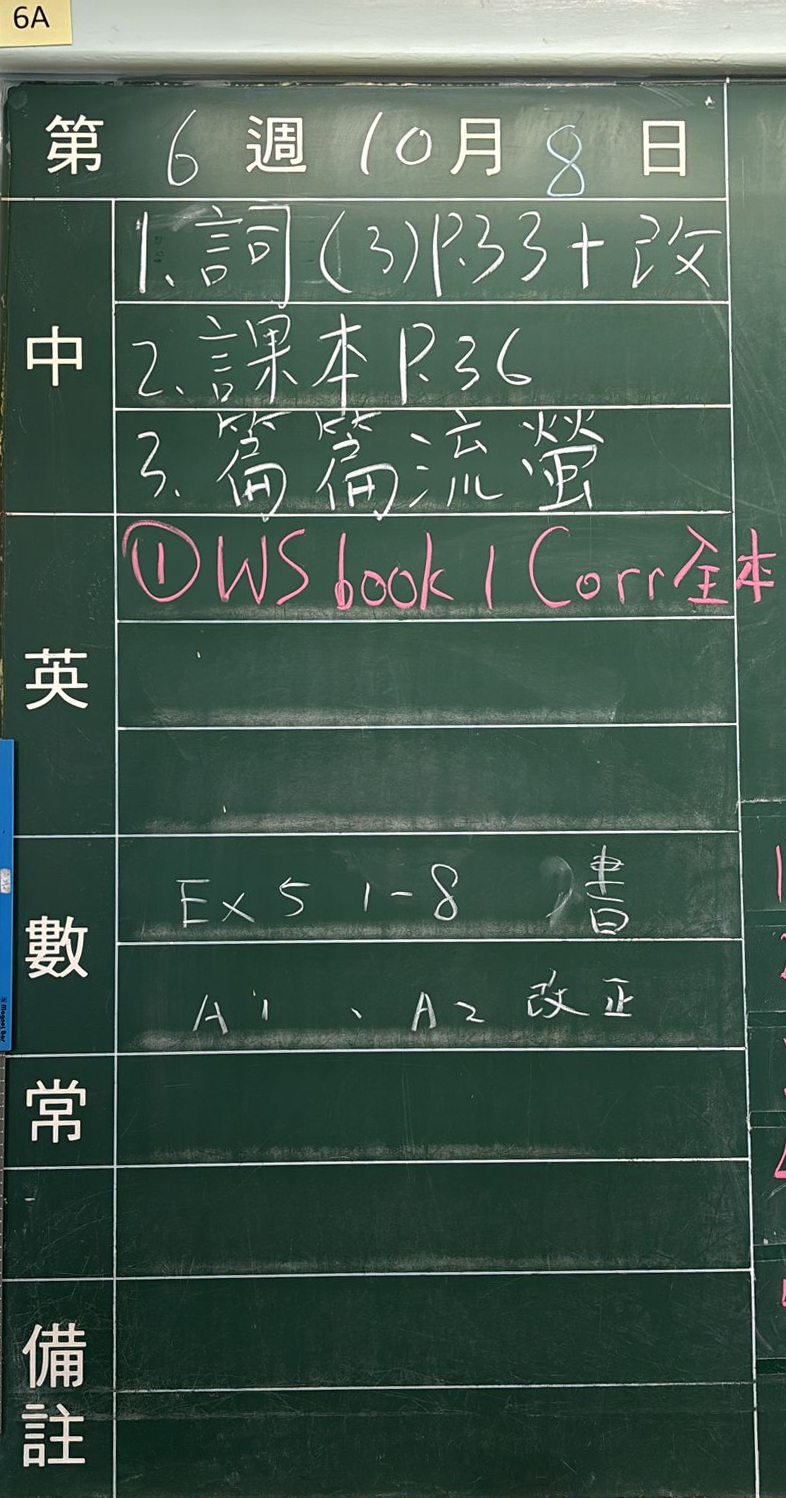 6A
第 6 週 10 月 8 日
中
1. 詞(3)P.33+改
2. 課本 P.36
3. 篇篇流螢
英
① WS book 1 Corr 全本
數
Ex 5 1-8 書
A1 、 A2 改正
常
備註